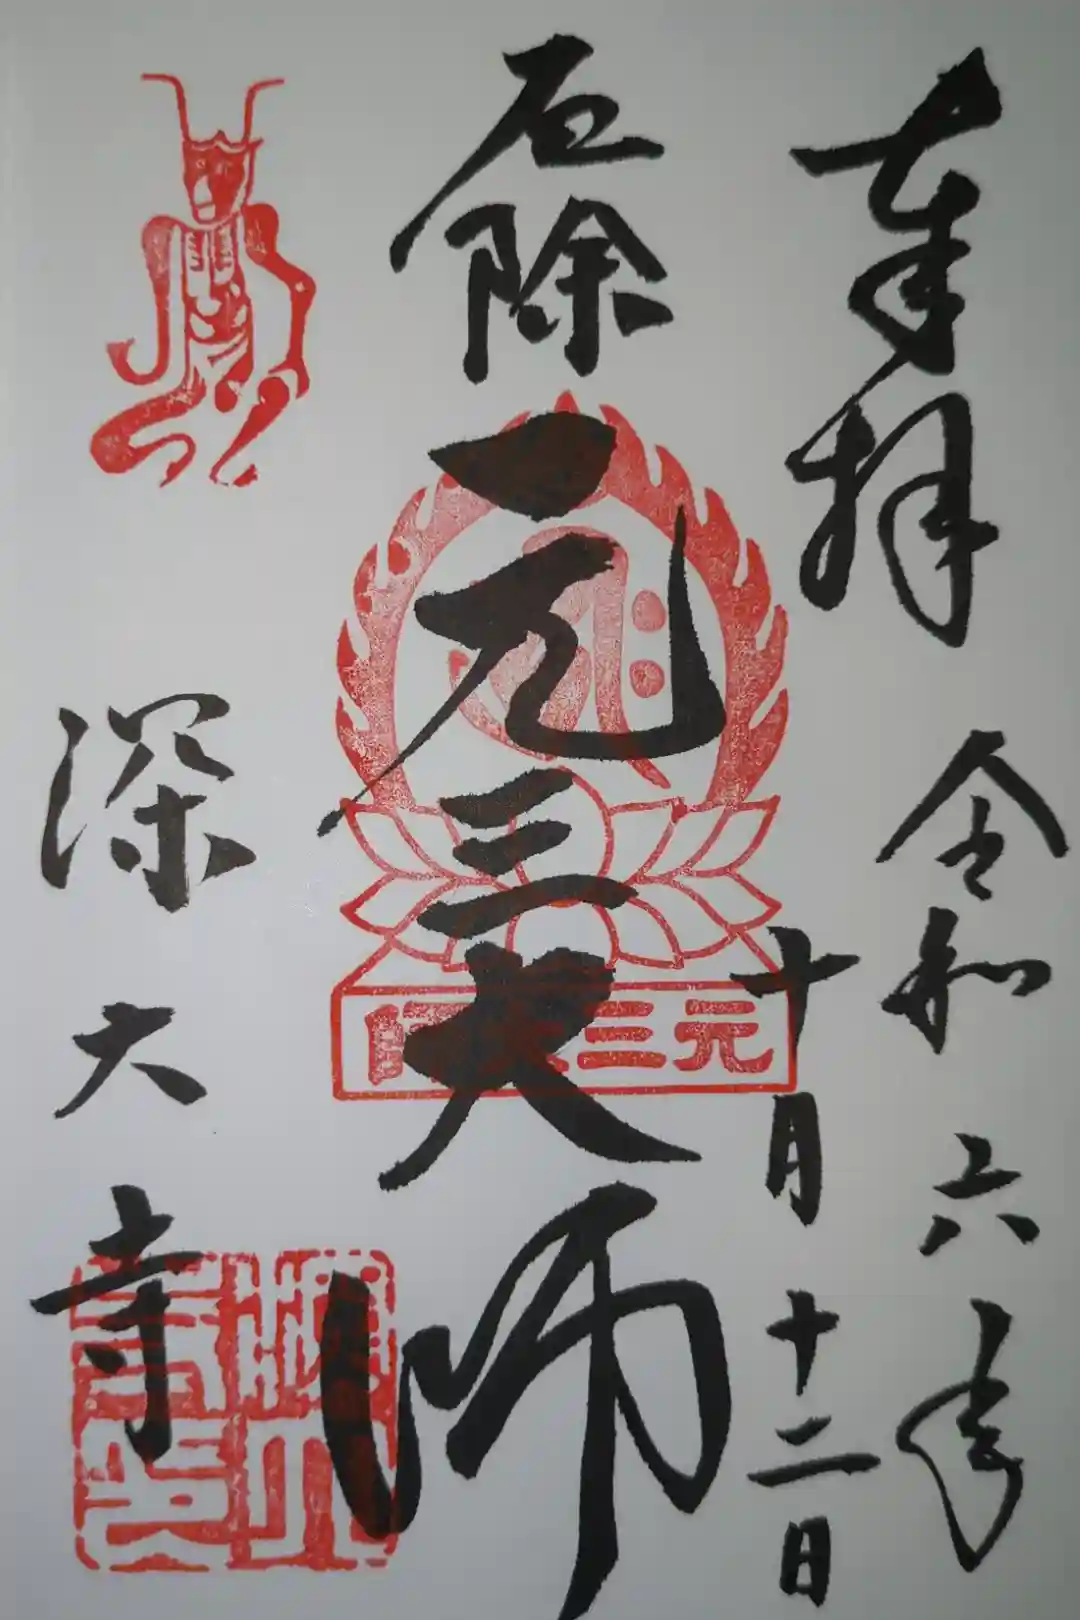 奉拝
令和六年
十月十二日
厄除
元三大師
元三大師
深大寺
深大寺